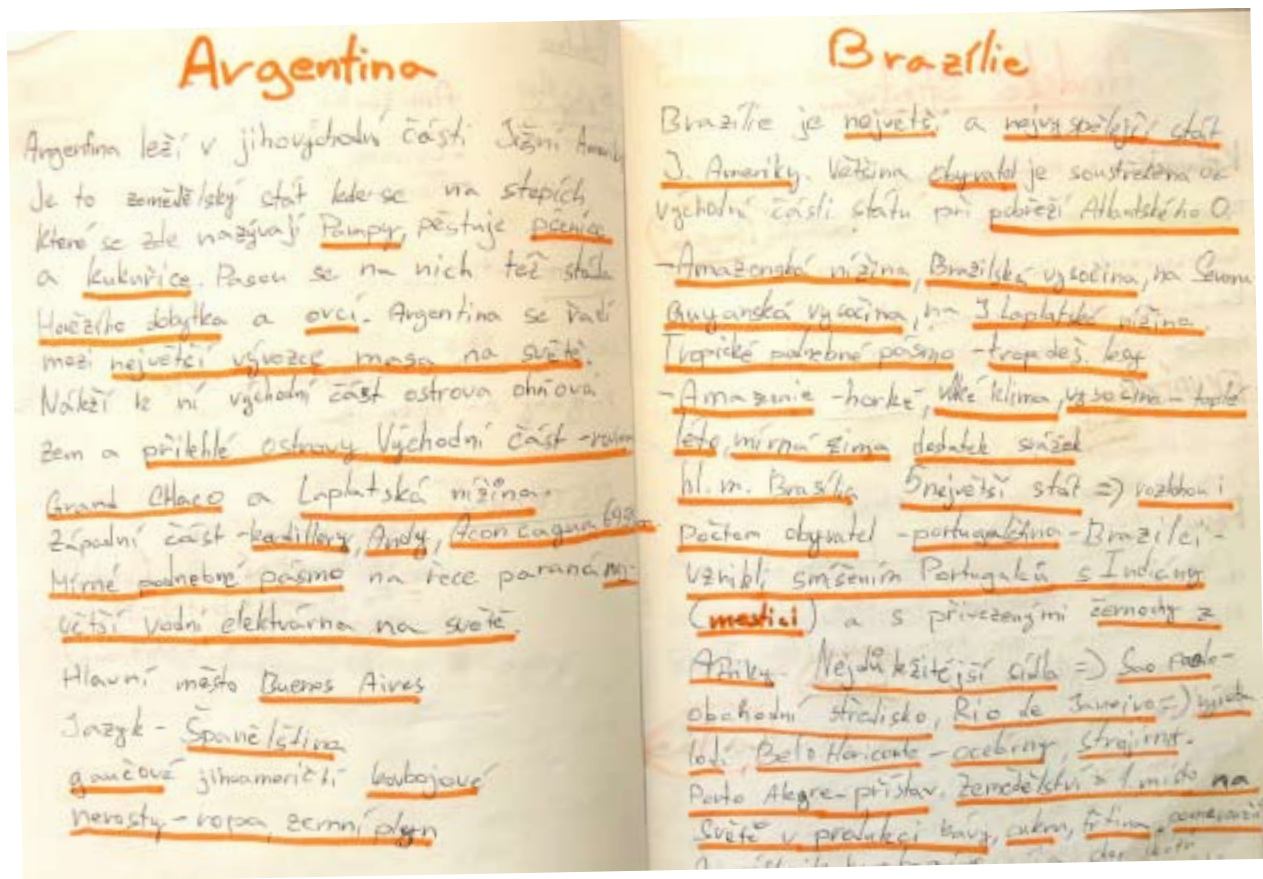 Argentina
Argentina leží v jihovýchodní části Jižní Ameriky
Je to zemědělský stát kde se na stepích
které se zde nazývají Pampy, pěstuje pčenice
a kukuřice. Pasou se na nich též stáda
Hovězího dobytka a ovcí. Argentina se řadí
mezi největčí vývozce masa na světě.
Náleží k ní východní část ostrova ohňová
zem a přilehlé ostrovy Východní část -
Grand CHaco a Laplatská nížina.
Západní část - kordillery, Andy, Acon cagua
Mírné podnebné pásmo na řece parana
větší vodní elektrárna na světě.
Hlavní město Buenos Aires
Jazyk - Španělština
gaučové jihoameričtí kovbojové
nerosty - ropa, zemní plyn
Brazílie
Brazílie je největší a nejvyspělejší stát
J. Ameriky. Většina obyvatel je soustředěna ve
východní části státu při pobřeží Atlantského O.
- Amazonská nížina, Brazilská vysočina, na Severu
Guyanská vysočina, na J Laplatská nížina.
Tropické podnebné pásmo - trop. deš. lesy
- Amazonie - horké, vlhké klima, vysočina - teplé
léto, mírná zima dostatek srážek
hl. m. Brasília 5největší stát => rozlohou i
Počtem obyvatel - portugalština - Brazilci -
vznikli smíšením Portugalců s Indiány
(mestici) a s přivezenými černochy z
Afriky. Nejdůležitější sídla => Sao Paolo -
obchodní středisko, Rio de Janeiro => výroba
lodí, Belo Horizonte - ocelárny strojírny.
Porto Alegre - přístav. Zemědělství = 1 místo na
Světě v produkci kávy, cukru, třtiny, pomerančů